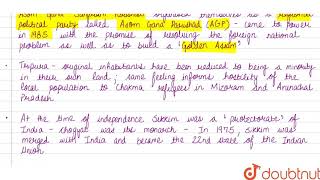 Asom Gana Sangram Parishad organised themselves as a regional
political party called Asom Gana Parishad (AGP) - came to power
in 1985 with the promise of resolving the foreign national
problem as well as to build a 'Golden Assam'
• Tripura - original inhabitants have been reduced to being a minority
in their own land; same feeling informs hostility of the
local population to Chakma refugees in Mizoram and Arunachal
Pradesh
• At the time of independence Sikkim was a 'protectorate' of
India - Chogyal was its monarch - In 1975, Sikkim was
merged with India and became the 22nd state of the Indian
Union.
doubtnut